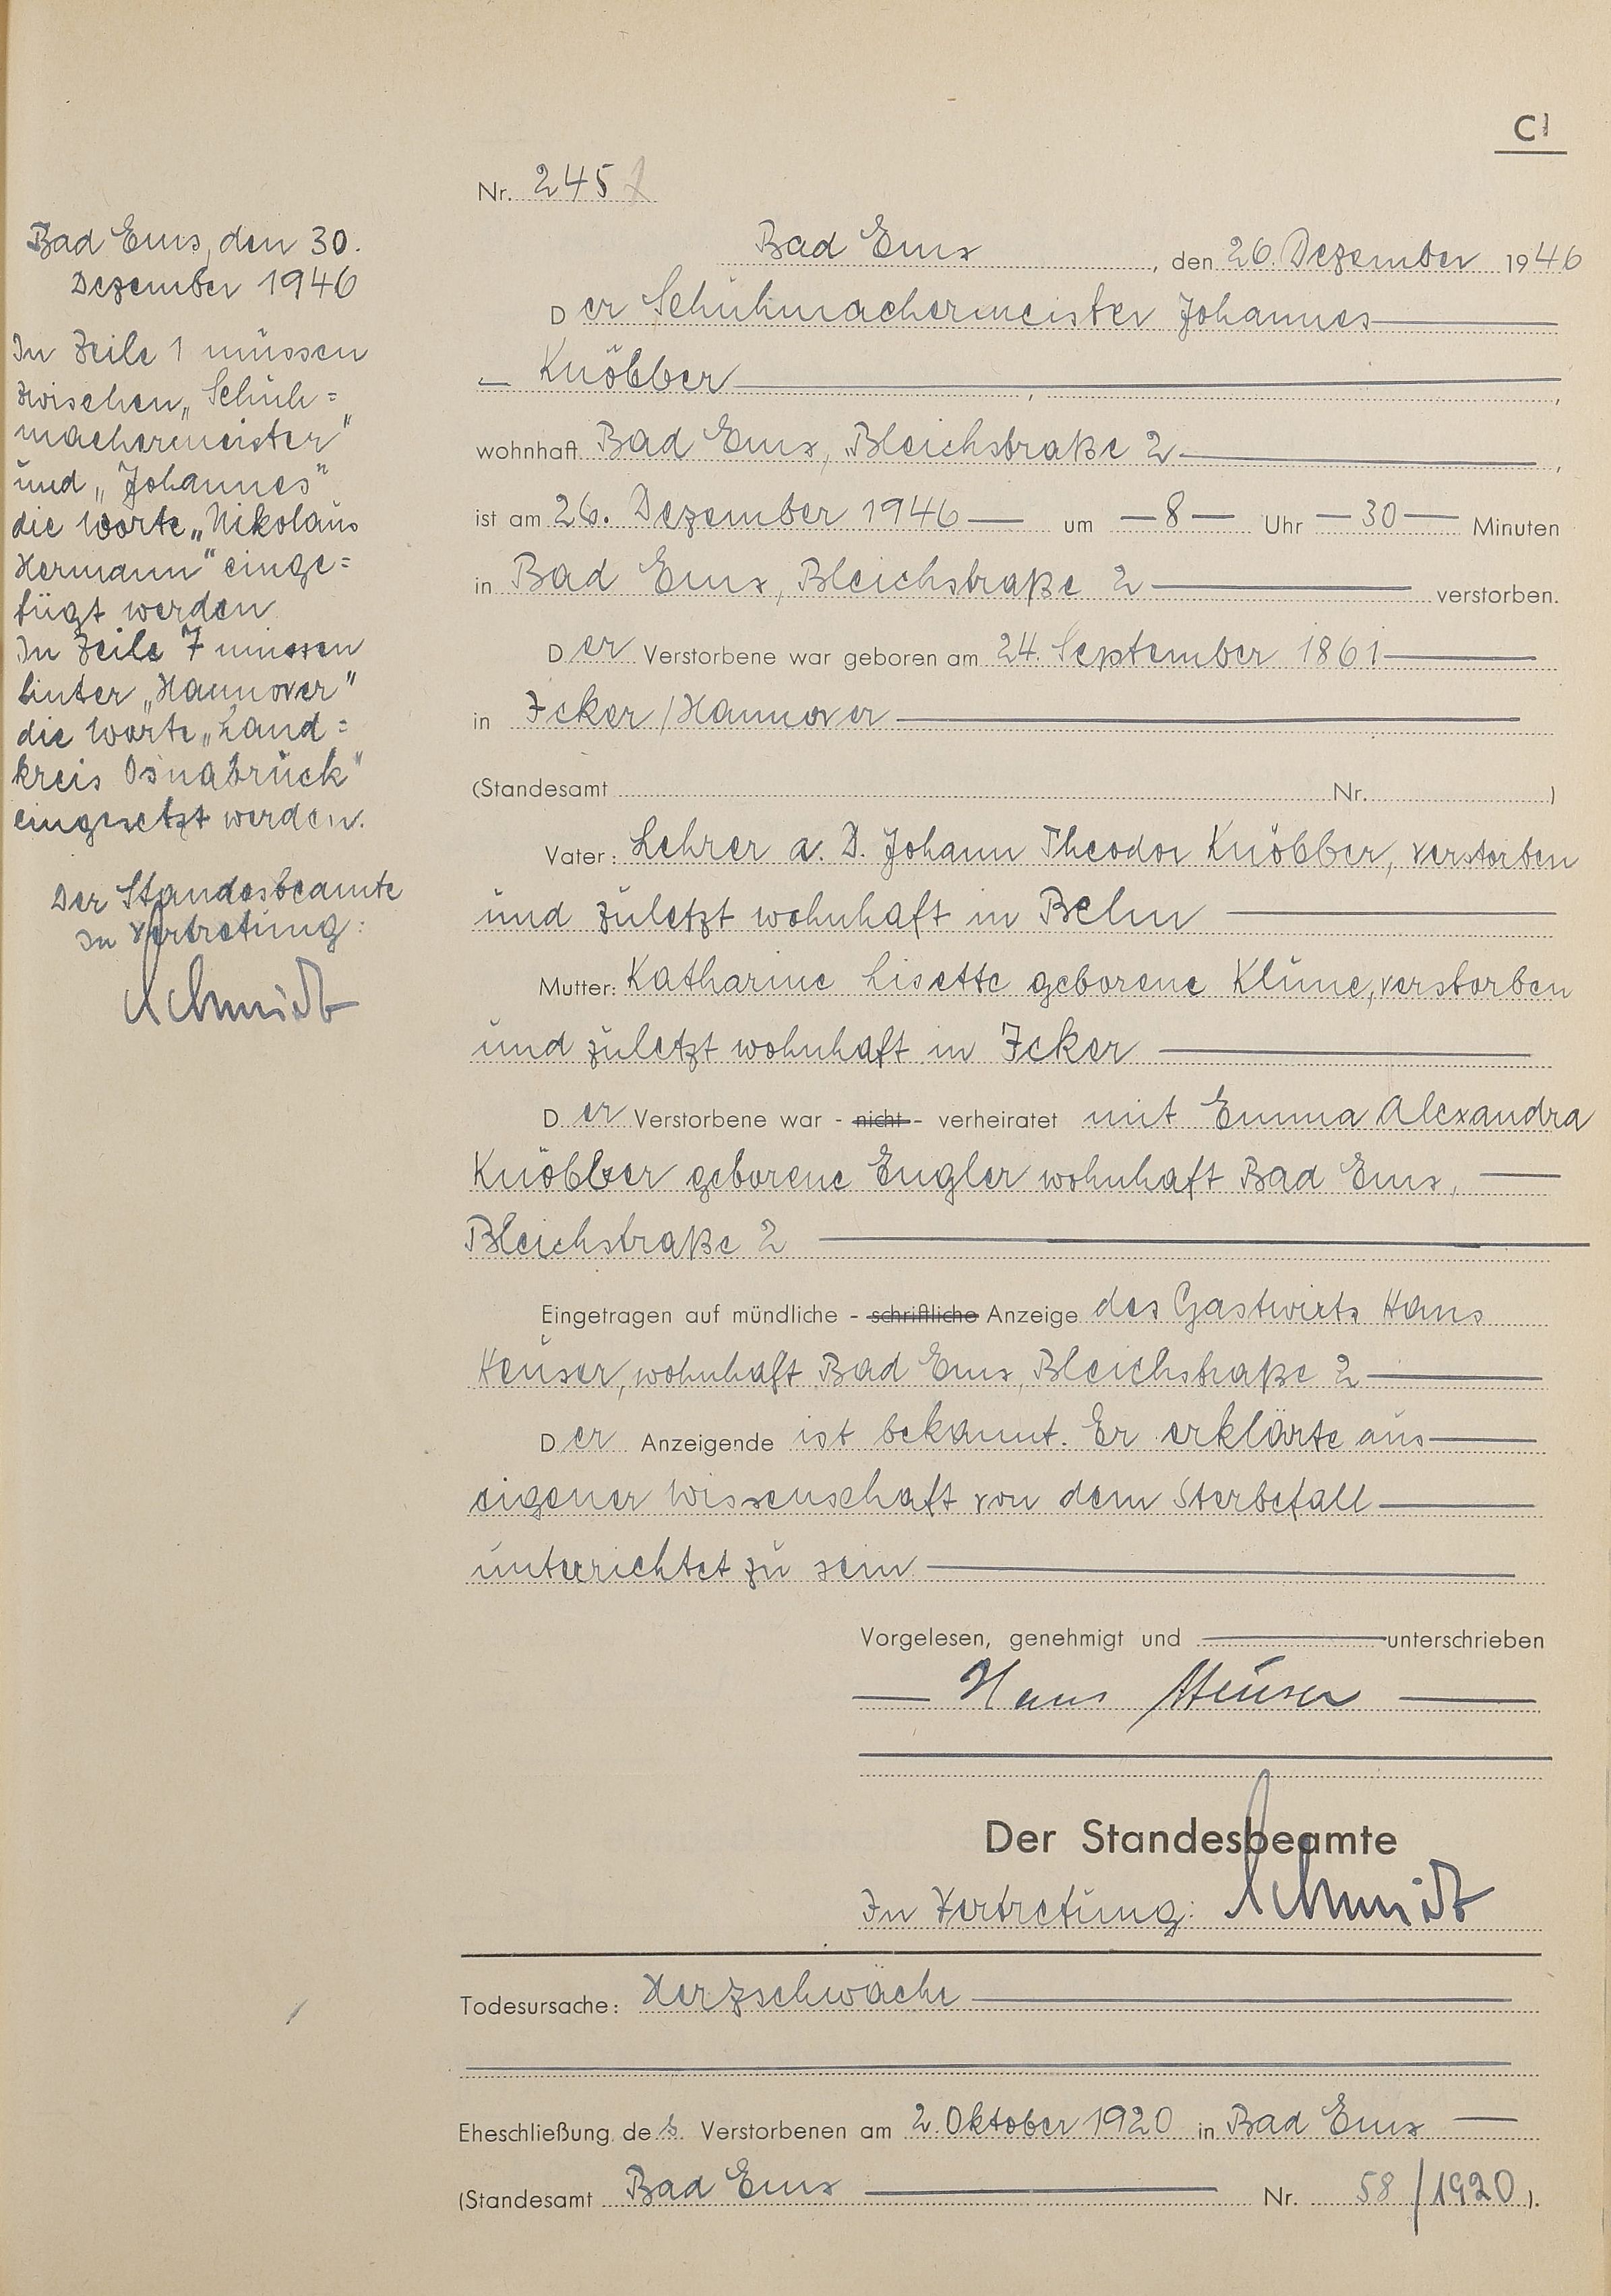 C1
Nr. 245
Bad Ems, den 26. Dezember 1946
Der Schuhmachermeister Johannes
Knöbber,
wohnhaft Bad Ems, Bleichstraße 2,
ist am 26. Dezember 1946 um 8 Uhr 30 Minuten
in Bad Ems, Bleichstraße 2 verstorben.
Der Verstorbene war geboren am 24. September 1861
in Icker / Hannover
(Standesamt Nr. )
Vater: Lehrer a. D. Johann Theodor Knöbber, verstorben
und zuletzt wohnhaft in Belm
Mutter: Katharine Lisette geborene Klune, verstorben
und zuletzt wohnhaft in Icker
Der Verstorbene war - nicht - verheiratet mit Emma Alexandra
Knöbber geborene Engler wohnhaft Bad Ems,
Bleichstraße 2
Eingetragen auf mündliche - schriftliche Anzeige des Gastwirts Hans
Heuser, wohnhaft Bad Ems, Bleichstraße 2
Der Anzeigende ist bekannt. Er erklärte aus
eigener Wissenschaft von dem Sterbefall
unterrichtet zu sein
Vorgelesen, genehmigt und unterschrieben
Hans Heuser
Der Standesbeamte
In Vertretung: Schmidt
Todesursache: Herzschwäche
Eheschließung des Verstorbenen am 2. Oktober 1920 in Bad Ems
(Standesamt Bad Ems Nr. 58/1920).
Bad Ems, den 30.
Dezember 1946
In Zeile 1 müssen
zwischen „Schuh=
machermeister"
und „Johannes"
die Worte „Nikolaus
Hermann" einge=
fügt werden
In Zeile 7 müssen
hinter „Hannover"
die Worte „Land=
kreis Osnabrück"
eingesetzt werden.
Der Standesbeamte
In Vertretung:
Schmidt